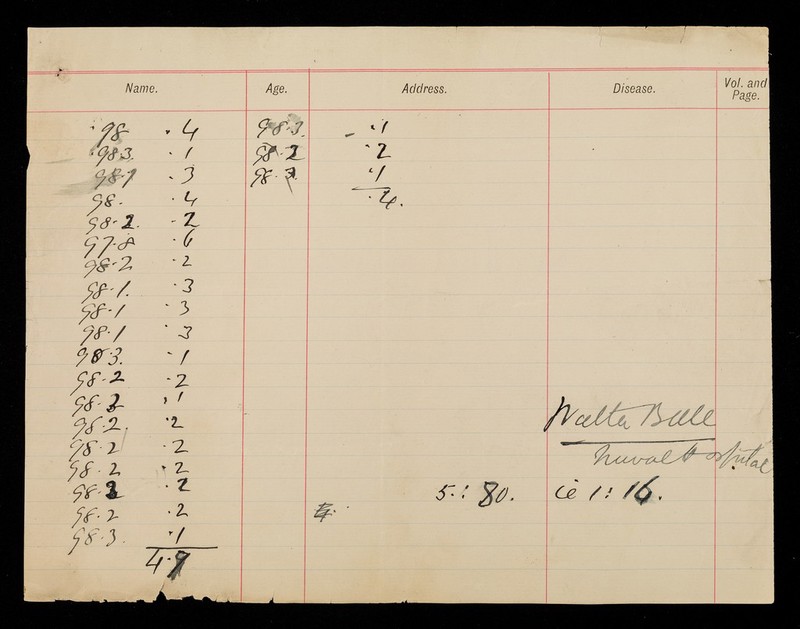 Name. Age. Address. Disease. Vol. and Page.
98 .4 98.3. .1
98.3. .1 98.2 .2
98.1 .3 98.3. .1
98. .4 .4.
98.2. .2
97.8 .6
98.2 .2
98.1. .3
98.1 .3
98.1 .3
98.3. .1
98.2 .2
98.3 .1
98.2. .2
98.2 .2
98.2 .2
98.2 .2
98.2 .2
98.3. .1
4.9
Walter Bull
Naval Hospital
5.: 80. ie 1: 16.